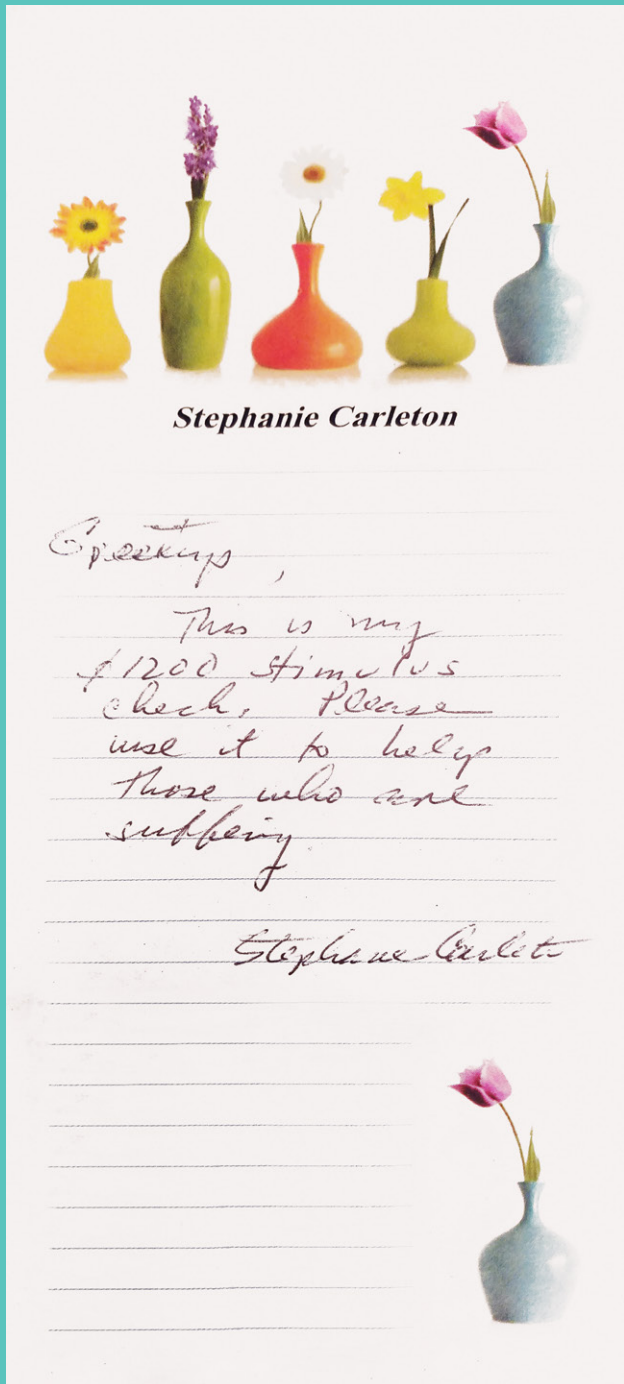 Stephanie Carleton
Greetings,
This is my
$1200 stimulus
check. Please
use it to help
those who are
suffering
Stephanie Carleton